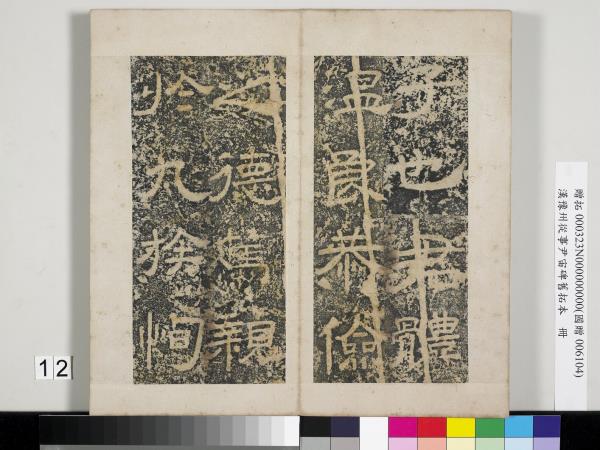 子也君體
溫良恭儉
之德篤親
於九族恂
12
贈拓 000323N000000000(國贈 006104)
漢豫州從事尹宙碑舊拓本 冊